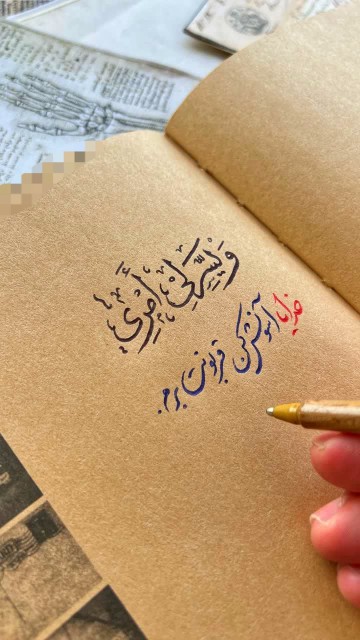 وَيَسِّرْ لِي أَمْرِي
خدایا آسونش کن قربونت برم.